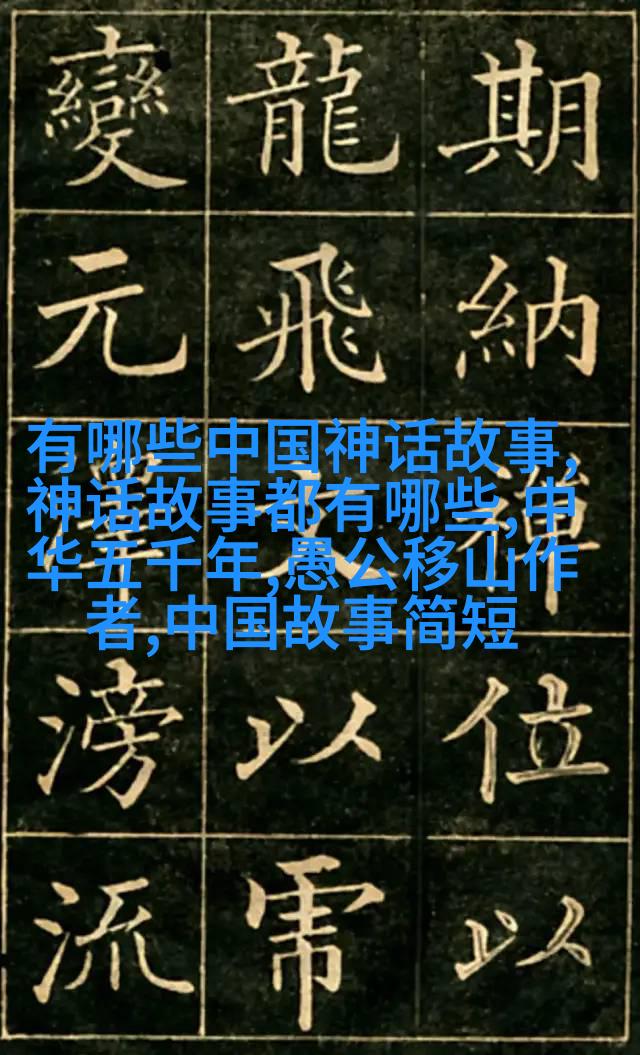 期納禪位以
龍飛文以虎
變元澤滂流
有哪些中国神话故事,
神话故事都有哪些,中
华五千年,愚公移山作
者,中国故事简短